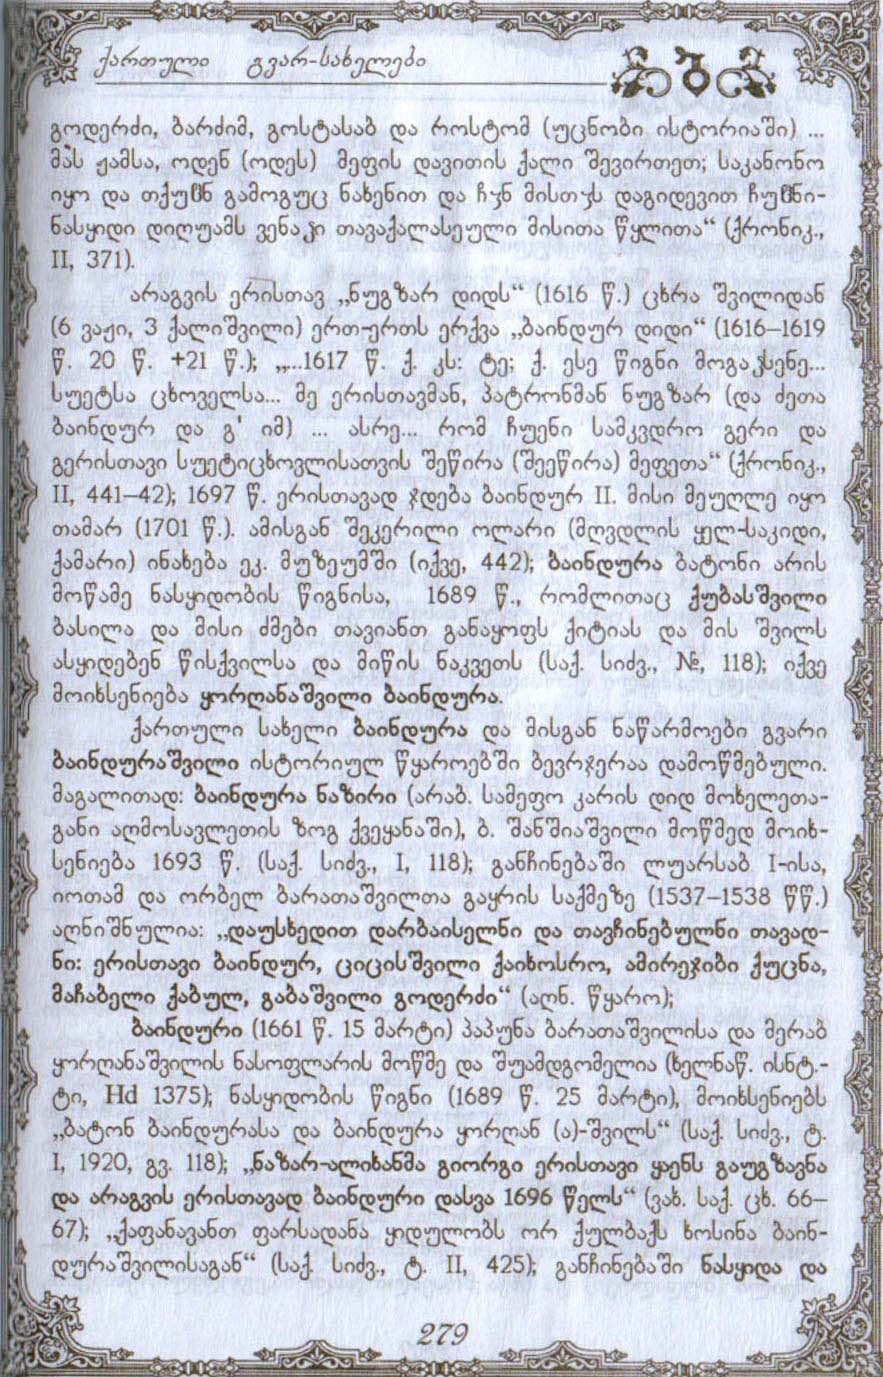 ქართული გვარ-სახელები
გოდერძი, ბარძიმ, გოსტასაბ და როსტომ (უცნობი ისტორიაში) ...
მას ჟამსა, ოდენ (ოდეს) მეფის დავითის ქალი შევირთეთ; საკანონო
იყო და თქუჱნ გამოგუც ნახენით და ჩჳნ მისთჳს დაგიდევით ჩუჱნი-
ნასყიდი დიღუამს ვენაჴი თავაქალასეული მისითა წყლითა“ (ქრონიკ.,
II, 371).
არაგვის ერისთავ „ნუგზარ დიდს“ (1616 წ.) ცხრა შვილიდან
(6 ვაჟი, 3 ქალიშვილი) ერთ-ერთს ერქვა „ბაინდურ დიდი“ (1616–1619
წ. 20 წ. +21 წ.); „...1617 წ. ქ. კს: ტე; ქ. ესე წიგნი მოგაჴსენე...
სუეტსა ცხოველსა... მე ერისთავმან, პატრონმან ნუგზარ (და ძეთა
ბაინდურ და გ' იმ) ... ასრე... რომ ჩუენი სამკვდრო გერი და
გერისთავი სუეტიცხოვლისათვის შეწირა (შეეწირა) მეფეთა“ (ქრონიკ.,
II, 441–42); 1697 წ. ერისთავად ჯდება ბაინდურ II. მისი მეუღლე იყო
თამარ (1701 წ.). ამისგან შეკერილი ოლარი (მღვდლის ყელ-საკიდი,
ქამარი) ინახება ეკ. მუზეუმში (იქვე, 442); ბაინდურა ბატონი არის
მოწამე ნასყიდობის წიგნისა, 1689 წ., რომლითაც ქუბასშვილი
ბასილა და მისი ძმები თავიანთ განაყოფს ქიტიას და მის შვილს
ასყიდებენ წისქვილსა და მიწის ნაკვეთს (საქ. სიძვ., №, 118); იქვე
მოიხსენიება ყორღანაშვილი ბაინდურა.
ქართული სახელი ბაინდურა და მისგან ნაწარმოები გვარი
ბაინდურაშვილი ისტორიულ წყაროებში ბევრჯერაა დამოწმებული.
მაგალითად: ბაინდურა ნაზირი (არაბ. სამეფო კარის დიდ მოხელეთა-
განი აღმოსავლეთის ზოგ ქვეყანაში), ბ. შანშიაშვილი მოწმედ მოიხ-
სენიება 1693 წ. (საქ. სიძვ., I, 118); განჩინებაში ლუარსაბ I-ისა,
იოთამ და ორბელ ბარათაშვილთა გაყრის საქმეზე (1537–1538 წწ.)
აღნიშნულია: „დაუსხედით დარბაისელნი და თავჩინებულნი თავად-
ნი: ერისთავი ბაინდურ, ციცისშვილი ქაიხოსრო, ამირეჯიბი ქუცნა,
მაჩაბელი ქაბულ, გაბაშვილი გოდერძი“ (აღნ. წყარო);
ბაინდური (1661 წ. 15 მარტი) პაპუნა ბარათაშვილისა და მერაბ
ყორღანაშვილის ნასოფლარის მოწმე და შუამდგომელია (ხელნაწ. ისნტ.-
ტი, Hd 1375); ნასყიდობის წიგნი (1689 წ. 25 მარტი), მოიხსენიებს
„ბატონ ბაინდურასა და ბაინდურა ყორღან (ა)-შვილს“ (საქ. სიძვ., ტ.
I, 1920, გვ. 118); „ნაზარ-ალიხანმა გიორგი ერისთავი ყაენს გაუგზავნა
და არაგვის ერისთავად ბაინდური დასვა 1696 წელს“ (ვახ. საქ. ცხ. 66–
67); „ქაფანავანთ ფარსადანა ყიდულობს ორ ქულბაქს ხოსინა ბაინ-
დურაშვილისაგან“ (საქ. სიძვ., ტ. II, 425); განჩინებაში ნასყიდა და
279